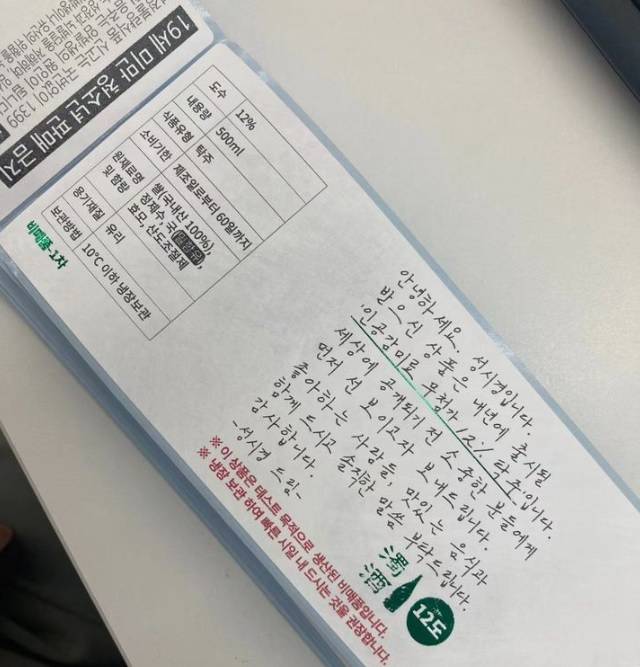 19세 미만 청소년 판매 금지
신고는 국번없이 1399
도수 12%
내용량 500ml
식품유형 탁주
소비기한 제조일로부터 60일까지
원재료명 쌀(국내산 100%),
및 함량 정제수, 국
효모, 산도조절제
용기재질 유리
보관방법 10℃ 이하 냉장보관
비매품-1차
안녕하세요. 성시경입니다.
받으신 상품은 내년에 출시될
'인공감미료 무첨가 12% 탁주'입니다.
세상에 공개되기 전 소중한 분들에게
먼저 선 보이고자 보내드립니다.
좋아하는 사람들, 맛있는 음식과
함께 드시고 솔직한 말씀 부탁드립니다.
감사합니다.
-성시경 드림-
※ 이 상품은 테스트 목적으로 생산된 비매품입니다.
※ 냉장 보관 하여 빠른 시일 내 드시는 것을 권장합니다.
濁酒
12도